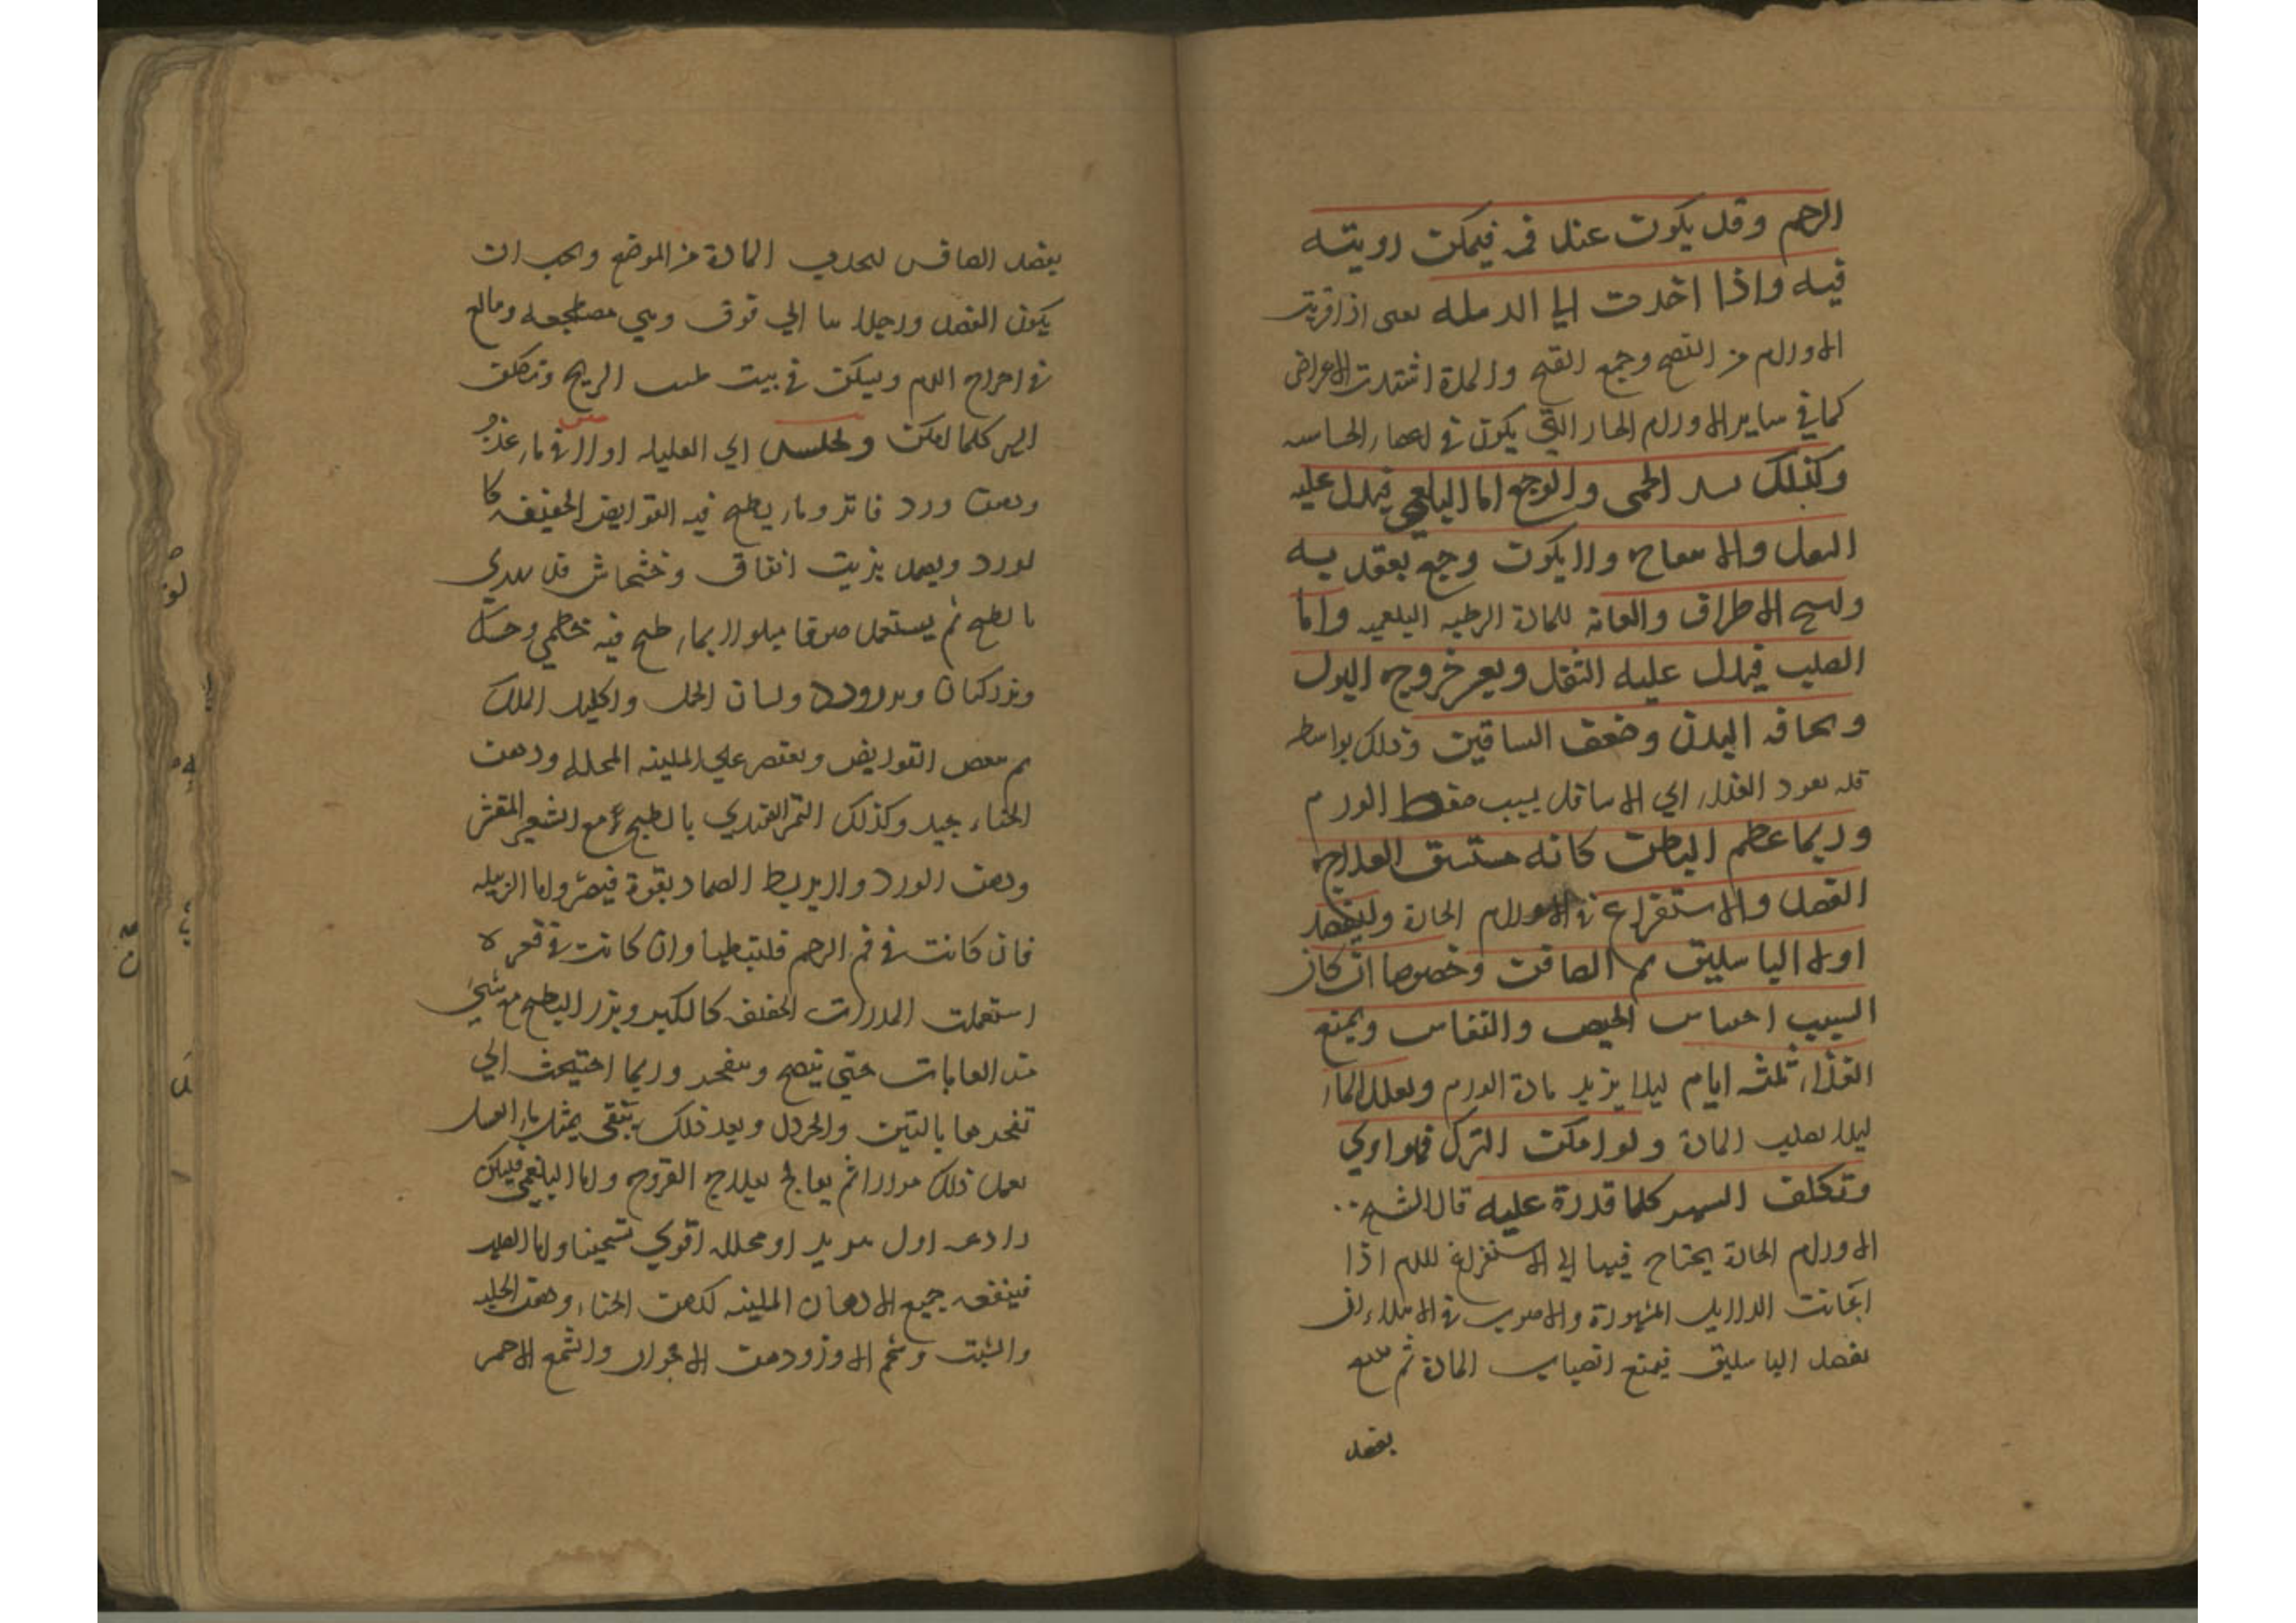 الرحم وقد يكون عند فمه فيمكن رويته
فيه واذا اخدت الي الدمله يعنى اذا قربت
الاورام من النضج وجمع القيح والمدة اشتدت الاعراض
كما في ساير الاورام الحار التي يكون في الحساسه
وكذلك الحمى والوجع اما البلغمي فيدل عليه
الثقل والا وجع يعقد به
الاطراف والعانه للمادة الرطبه البلغميه واما
الصلب فيدل عليه الثقل ويعسر خروج البول
ونحافه البدن وضعف الساقين وذلك بواسطه
قله نعود الغذاء الي الاسافل بسبب ضغط الورم
وربما عظم البطن كانه مستسق العلاج
الفصد والاستفراغ في الاورام الحادة وليفصد
اولا الباسليق ثم الصافن وخصوصا ان كان
السبب احتباس الحيض والنفاس ويمنع
الغذاء ثلثه ايام ليلا يزيد مادة الورم ويقلل الماء
ليلا المادة ولو امكن الترك فهو اولي
وتكلف السهر كلما قدرة عليه قال الشيخ
الاورام الحادة يحتاج فيها الي الاستفراغ للدم اذا
كانت الدلايل المشهورة والاصوب في الابتداء ان
يفصد الباسليق فيمنع انصباب المادة ثم
يفصد
يفصد الصافن لتجذب المادة من الموضع ويجب ان
يكون الفصد ورجلاها الي فوق وهي مضطجعه وبالغ
في اخراج الدم وليكن في بيت طيب الريح وتكلف
السهر كلما امكن وتجلس اي العليله اولا في ماء عذب
ودهن ورد فاتر وماء يطبخ فيه القوابض الخفيفه كا
لورد ويعمل بزيت انفاق وخشخاش قد
بالطبخ ثم يستعمل صوفا مبلولا بماء طبخ فيه خطمي
وبزر كتان ولسان الحمل واكليل الملك
ثم القوابض ويقتصر علي الملينه المحلله ودهن
الحناء جيد وكذلك التمر الهندي بالطبيخ مع الشعير المقشر
ودهن الورد ولا يربط الضماد بقوة فيضر واما الدبيله
فان كانت في فم الرحم فلتبط وان كانت في قعره
استعملت المدرات الخفيفه كالكبر وبزر البطيخ مع شي
من اللعابات حتي ينضج وينفجر وربما احتيجت الي
تفجرها بالتين والخردل وبعد ذلك ينقي بمثل ماء العسل
يعمل ذلك مرارا ثم يعالج بعلاج القروح واما البلغمي فليكن
رادعه اول او محلله اقوي تسخينا واما الصلب
فينفعه جميع الادهان الملينه كدهن الحناء ودهن الحلبه
والشبت وشحم الاوز ودهن والشمع الاحمر